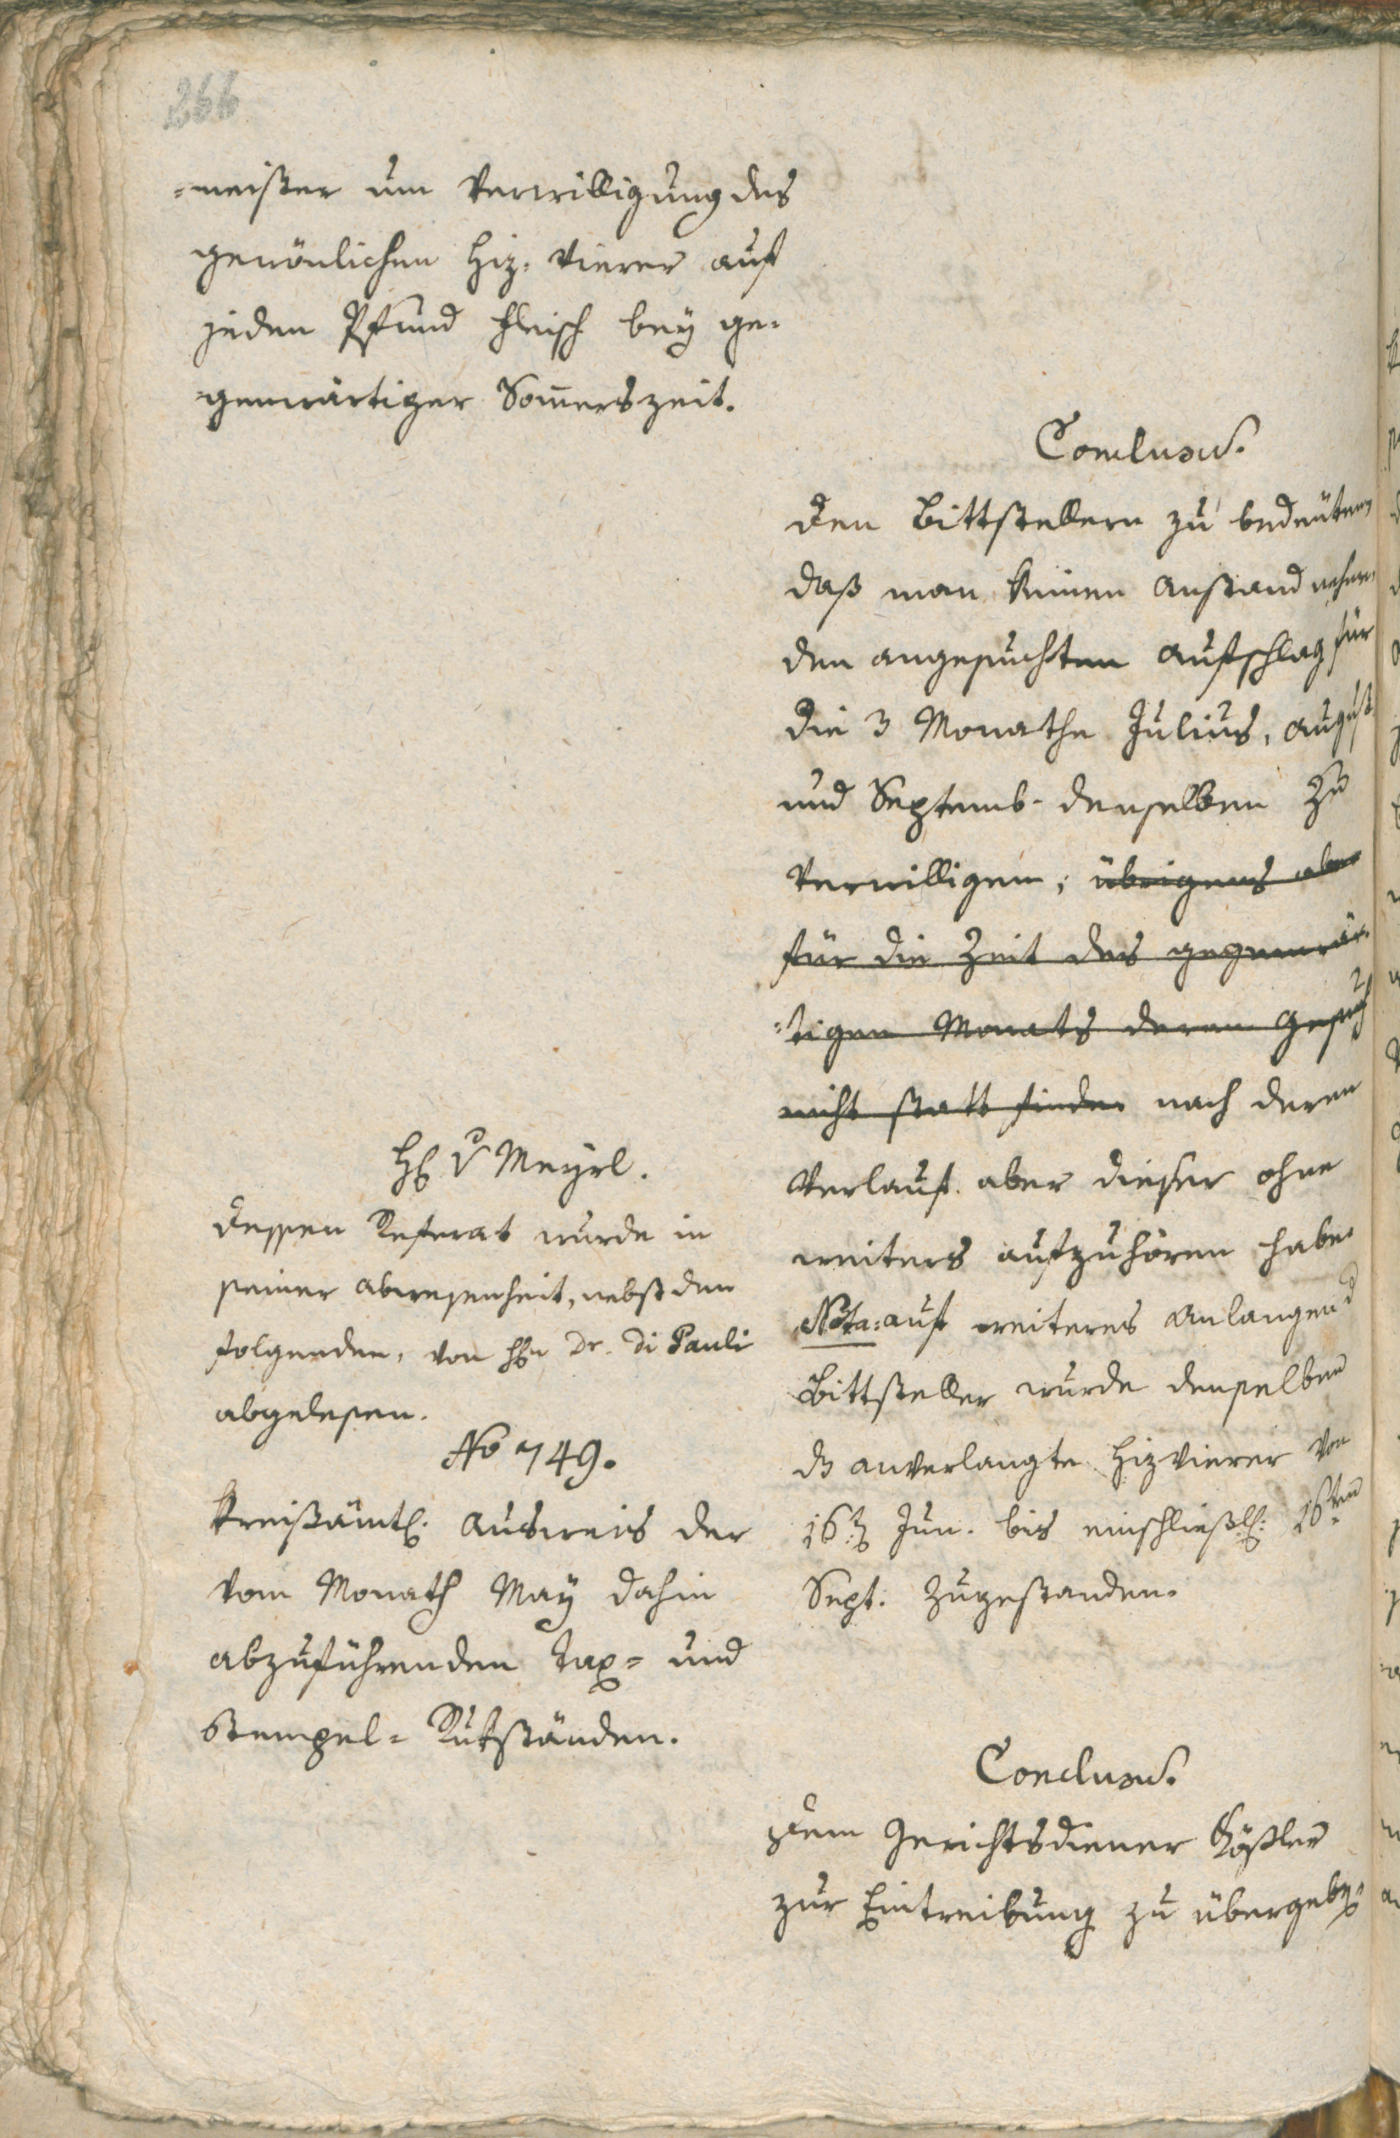 266
=meister um Verwilligung des
gewönlichen Hiz-Vierer auf
jeden Pfund Fleisch bey ge-
genwärtiger Som̄erszeit.
Conclusu.
Den Bittstellern zu bedeüten,
daß man keinen Anstand nehme,
den angesuchten Aufschlag für
die 3 Monathe Julius, August
und Septemb. denselben zu
verwilligen; übrigens aber
für die Zeit des gegenwär-
=tigen Monats deren Gesuch
nicht statt finden nach deren
Verlauf aber dieser ohne
weiters aufzuhören habe.
Nota: auf weiteres Anlangen d
Bittsteller wurde denselben
dz anverlangte Hizvierer von
16tz Jun. bis einschließl: 16ten
Sept: zugestanden.
H v Meyrl.
Dessen Referat wurde in
seiner Abwesenheit, nebst den
folgenden, von Hn Dr. Di Pauli
abgelesen.
No 749.
Kreißämtl. Ausweis der
vom Monath May dahin
abzuführenden Tax= und
Stempel= Rukständen.
Conclusu.
Dem Gerichtsdiener Rößler
zur Eintreibung zu übergeben.